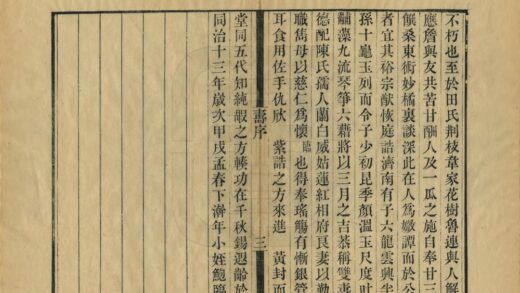 不朽也至於田氏荆枝韋家花樹魯連與人解
應詹與友共苦甘酬人及一瓜之施自奉甘三
饌桑東術妙橘裏談深此在人爲譚而於公
者宜其裕宗猷恢庭誥濟南有子六龍雲興
孫十龜玉列而令子少初昆季顏溫玉尺度叶
藻九流琴箏六藉將以三月之吉恭稱雙壽
德配陳氏孺人蘭白威姑蓮紅相府良妻以勤
職雋母以慈仁爲懷臨也得奉瑤觴有慚銀管
耳食用佐手仇欣 紫誥之方來進 黃封而
壽序 三
堂同五代知純嘏之方輳功在千秋錫遐齡於
同治十三年歲次甲戌孟春下澣年小姪鮑臨